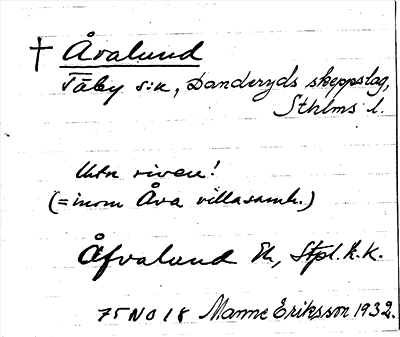 † Åvalund
Täby s:n, Danderyds skeppslag,
Sthlms l.
riven!
(=inom Åva villasamh.)
Åfvalund Ek, Stpl. k.k.
75 NO 18 Manne Eriksson 1932.